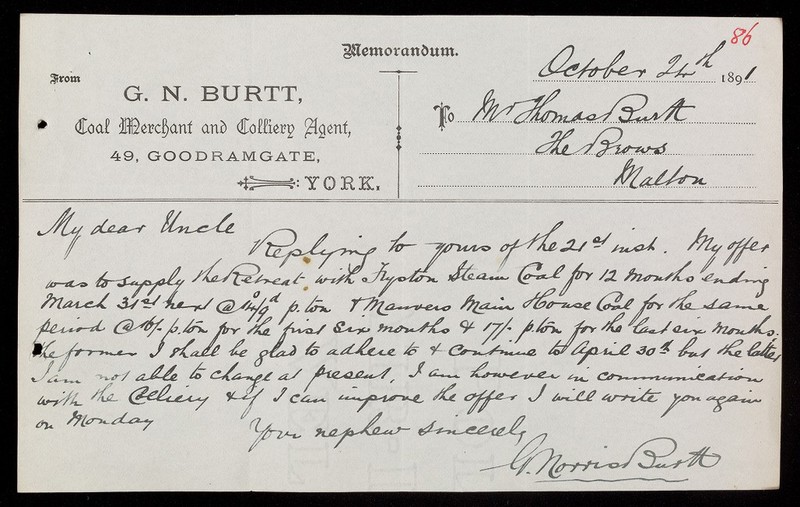 86
Memorandum.
From
October 24th 1891
G. N. BURTT,
Coal Merchant and Colliery Agent,
49, GOODRAMGATE,
YORK.
To Mr Thomas Burtt
The Brows
Malton
My dear Uncle
Replying to yours of the 21st inst. My offer
was to supply the Retreat with Fryston Steam Coal for 12 months ending
March 31st next @ 14/9d p. ton & Manvers Main House Coal for the same
period @ 16/- p. ton for the first six months & 17/- p. ton for the last six months.
the former I shall be glad to adhere to & continue to April 30th but the latter
I am not able to change at present. I am however in communication
with the Colliery & if I can improve the offer I will write you again
on Monday
Your nephew sincerely
G. Norris Burtt